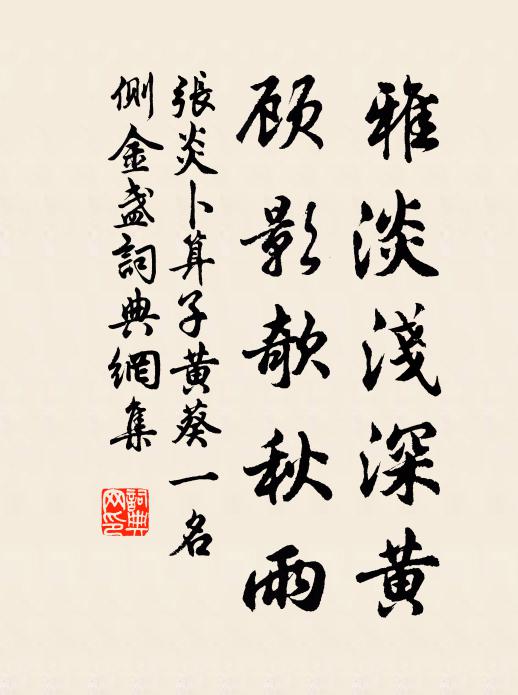 雅淡淺深黄
顾影欹秋雨
張炎卜算子黄葵一名
側金盏詞典網集
詞典网印